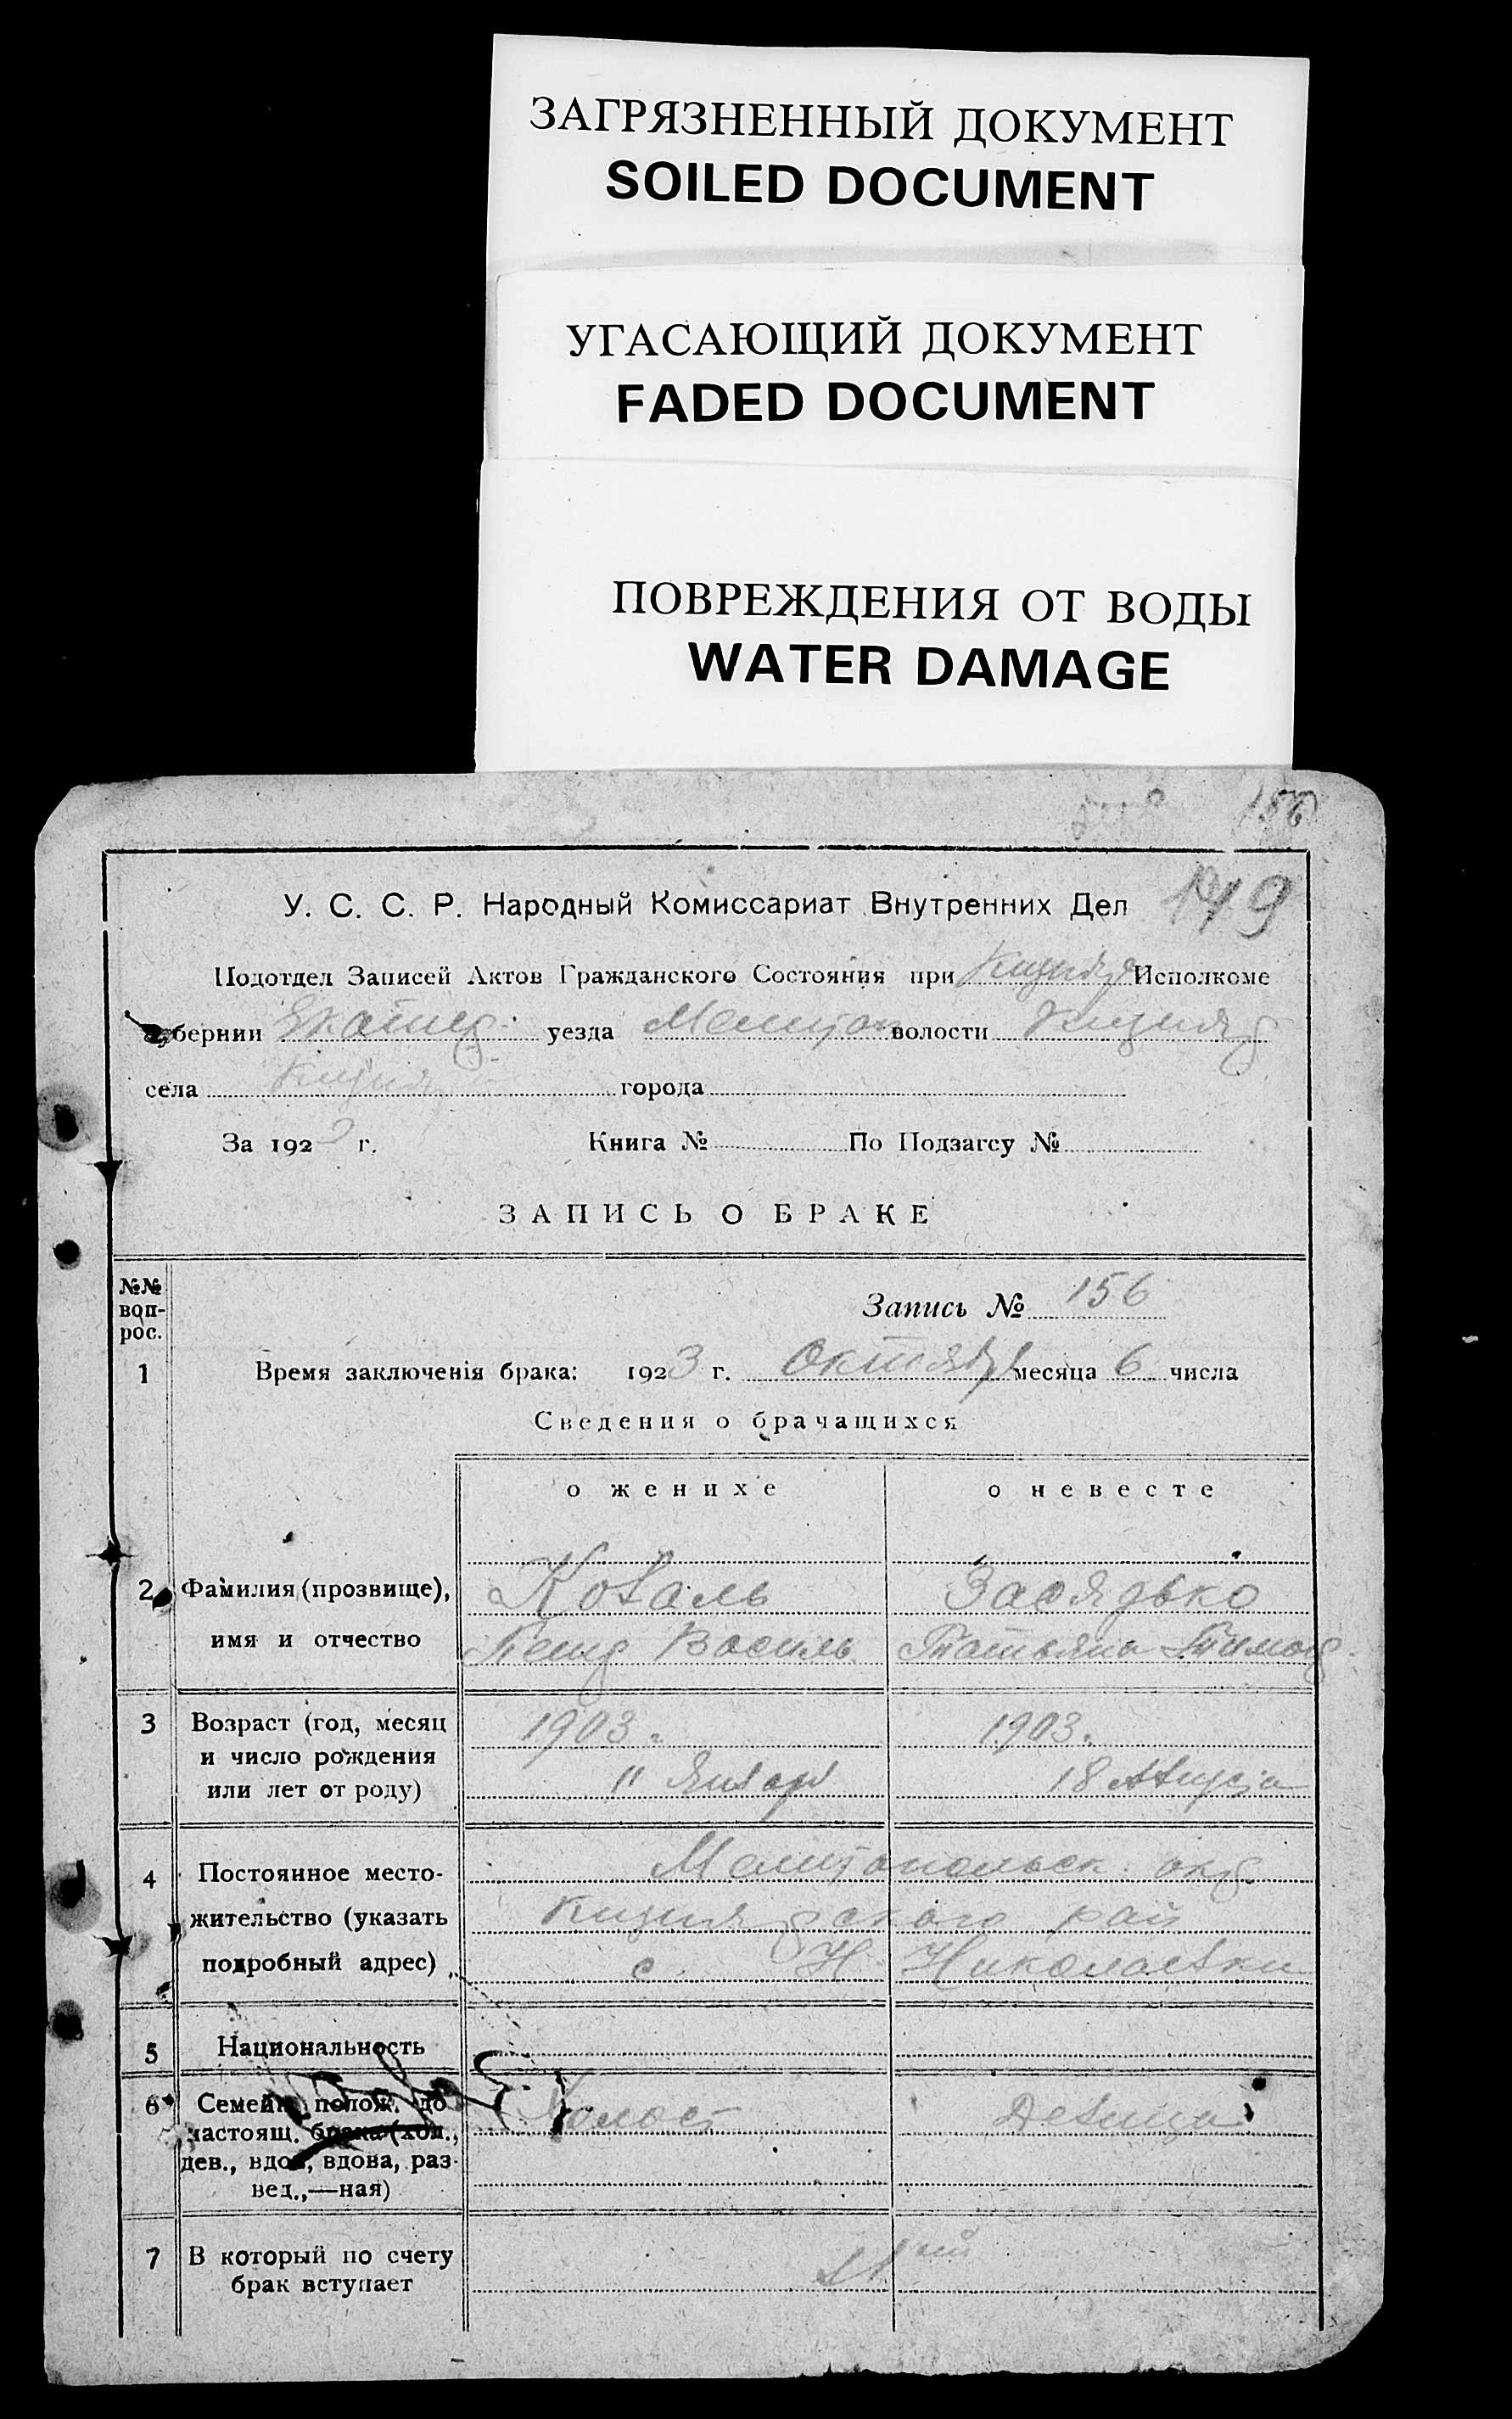 ЗАГРЯЗНЕННЫЙ ДОКУМЕНТ
SOILED DOCUMENT
УГАСАЮЩИЙ ДОКУМЕНТ
FADED DOCUMENT
ПОВРЕЖДЕНИЯ ОТ ВОДЫ
WATER DAMAGE
156
149
У. С. С. Р. Народный Комиссариат Внутренних Дел
Подотдел Записей Актов Гражданского Состояния при Исполкоме
губернии Екатер. уезда Мелитоп волости
села города
За 1923 г. Книга № По Подзагсу №
ЗАПИСЬ О БРАКЕ
№№ воп-
рос.
Запись № 156
1 Время заключенія брака: 1923 г. Октября месяца 6 числа
Сведения о брачащихся
о женихе о невесте
2 Фамилия (прозвище), Коваль Засядько
имя и отчество Василь Татьяна Тимоф
3 Возраст (год, месяц 1903 г 1903 г
и число рождения
или лет от роду) 11 Января 18 Августа
4 Постоянное место- Мелитопольск. окр.
жительство (указать рай
подробный адрес) с. Н. Николаевки
5 Национальность
6 Семейн. полож. до Холост Девица
настоящ. брака (хол.,
дев., вдов, вдова, раз-
вед.,—ная)
7 В который по счету
брак вступает